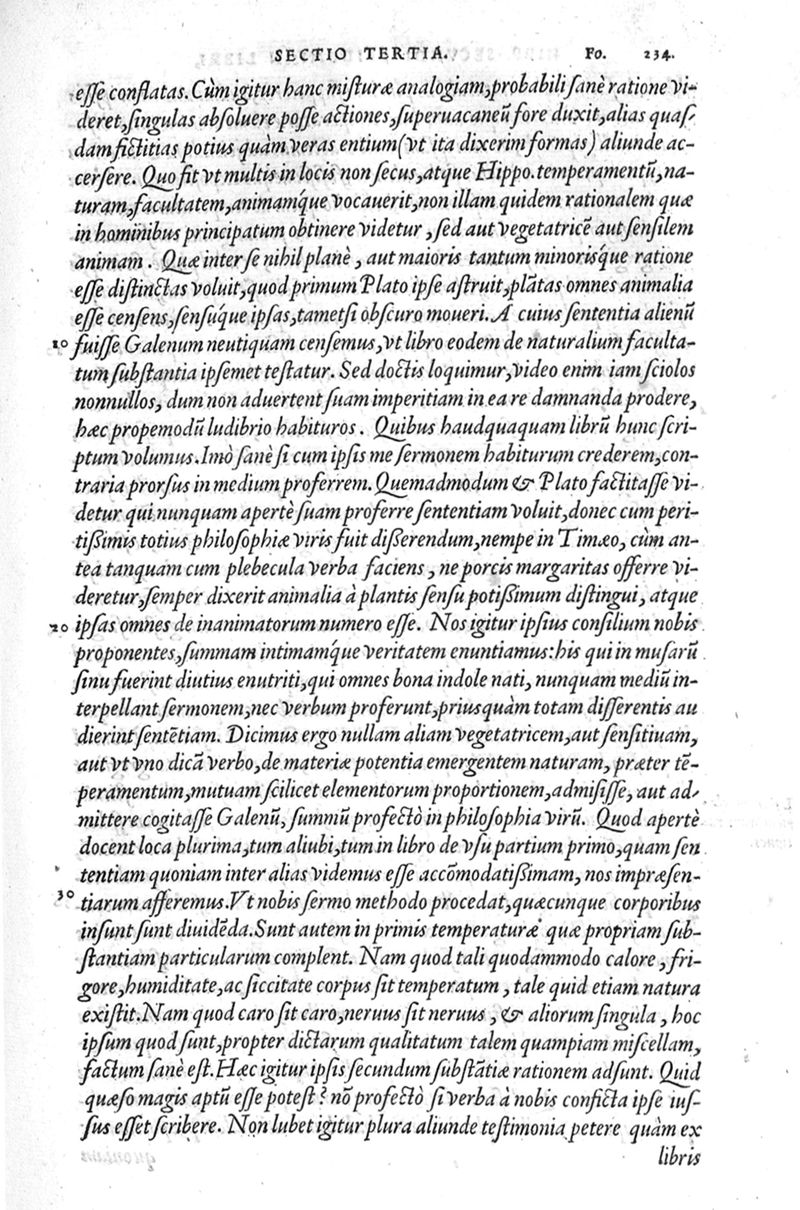 SECTIO TERTIA. Fo. 234.
esse conflatas. Cùm igitur hanc misturæ analogiam, probabili sanè ratione vi-
deret, singulas absoluere posse actiones, superuacaneũ fore duxit, alias quas-
dam fictitias potius quàm veras entium (vt ita dixerim formas) aliunde ac-
cersere. Quo fit vt multis in locis non secus, atque Hippo. temperamentũ, na-
turam, facultatem, animamq́ue vocauerit, non illam quidem rationalem quæ
in hominibus principatum obtinere videtur, sed aut vegetatricẽ aut sensilem
animam. Quæ inter se nihil planè, aut maioris tantum minorisq́ue ratione
esse distinctas voluit, quod primum Plato ipse astruit, plãtas omnes animalia
esse censens, sensúque ipsas, tametsi obscuro moueri. A cuius sententia alienũ
10 fuisse Galenum neutiquam censemus, vt libro eodem de naturalium faculta-
tum substantia ipsemet testatur. Sed doctis loquimur, video enim iam sciolos
nonnullos, dum non aduertent suam imperitiam in ea re damnanda prodere,
hæc propemodũ ludibrio habituros. Quibus haudquaquam librũ hunc scri-
ptum volumus. Imò sanè si cum ipsis me sermonem habiturum crederem, con-
traria prorsus in medium proferrem. Quemadmodum & Plato factitasse vi-
detur qui nunquam apertè suam proferre sententiam voluit, donec cum peri-
tißimis totius philosophiæ viris fuit dißerendum, nempe in Timæo, cùm an-
tea tanquam cum plebecula verba faciens, ne porcis margaritas offerre vi-
deretur, semper dixerit animalia à plantis sensu potißimum distingui, atque
20 ipsas omnes de inanimatorum numero esse. Nos igitur ipsius consilium nobis
proponentes, summam intimamq́ue veritatem enuntiamus: his qui in musarũ
sinu fuerint diutius enutriti, qui omnes bona indole nati, nunquam mediũ in-
terpellant sermonem, nec verbum proferunt, priusquàm totam differentis au
dierint sentẽtiam. Dicimus ergo nullam aliam vegetatricem, aut sensitiuam,
aut vt vno dicã verbo, de materiæ potentia emergentem naturam, præter tẽ-
peramentum, mutuam scilicet elementorum proportionem, admisisse, aut ad-
mittere cogitasse Galenũ, summũ profectò in philosophia virũ. Quod apertè
docent loca plurima, tum aliubi, tum in libro de vsu partium primo, quam sen
tentiam quoniam inter alias videmus esse accõmodatißimam, nos impræsen-
30 tiarum afferemus. Vt nobis sermo methodo procedat, quæcunque corporibus
insunt sunt diuidẽda. Sunt autem in primis temperaturæ quæ propriam sub-
stantiam particularum complent. Nam quod tali quodammodo calore, fri-
gore, humiditate, ac siccitate corpus sit temperatum, tale quid etiam natura
existit. Nam quod caro sit caro, neruus sit neruus, & aliorum singula, hoc
ipsum quod sunt, propter dictarum qualitatum talem quampiam miscellam,
factum sanè est. Hæc igitur ipsis secundum substãtiæ rationem adsunt. Quid
quæso magis aptũ esse potest? nõ profectò si verba à nobis conficta ipse ius-
sus esset scribere. Non lubet igitur plura aliunde testimonia petere quàm ex
libris